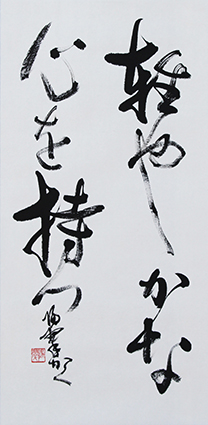 軽やかな
心を持つ